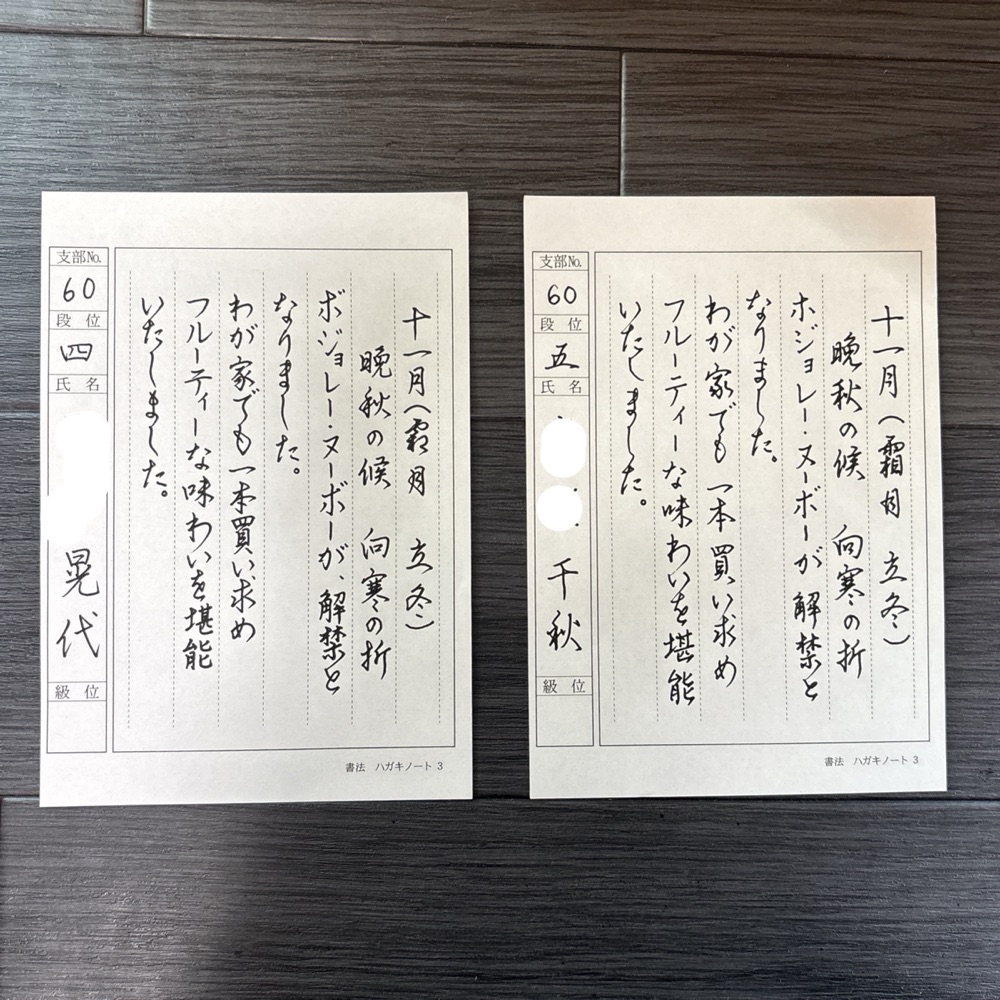 十一月(霜月 立冬)
晩秋の候 向寒の折
ボジョレー・ヌーボーが、解禁と
なりました。
わが家でも一本買い求め
フルーティーな味わいを堪能
いたしました。
支部No.
60
段位
四
氏名
晃代
級位
書法 ハガキノート 3
十一月(霜月 立冬)
晩秋の候 向寒の折
ボジョレー・ヌーボーが解禁と
なりました。
わが家でも一本買い求め
フルーティーな味わいを堪能
いたしました。
支部No.
60
段位
五
氏名
千秋
級位
書法 ハガキノート 3